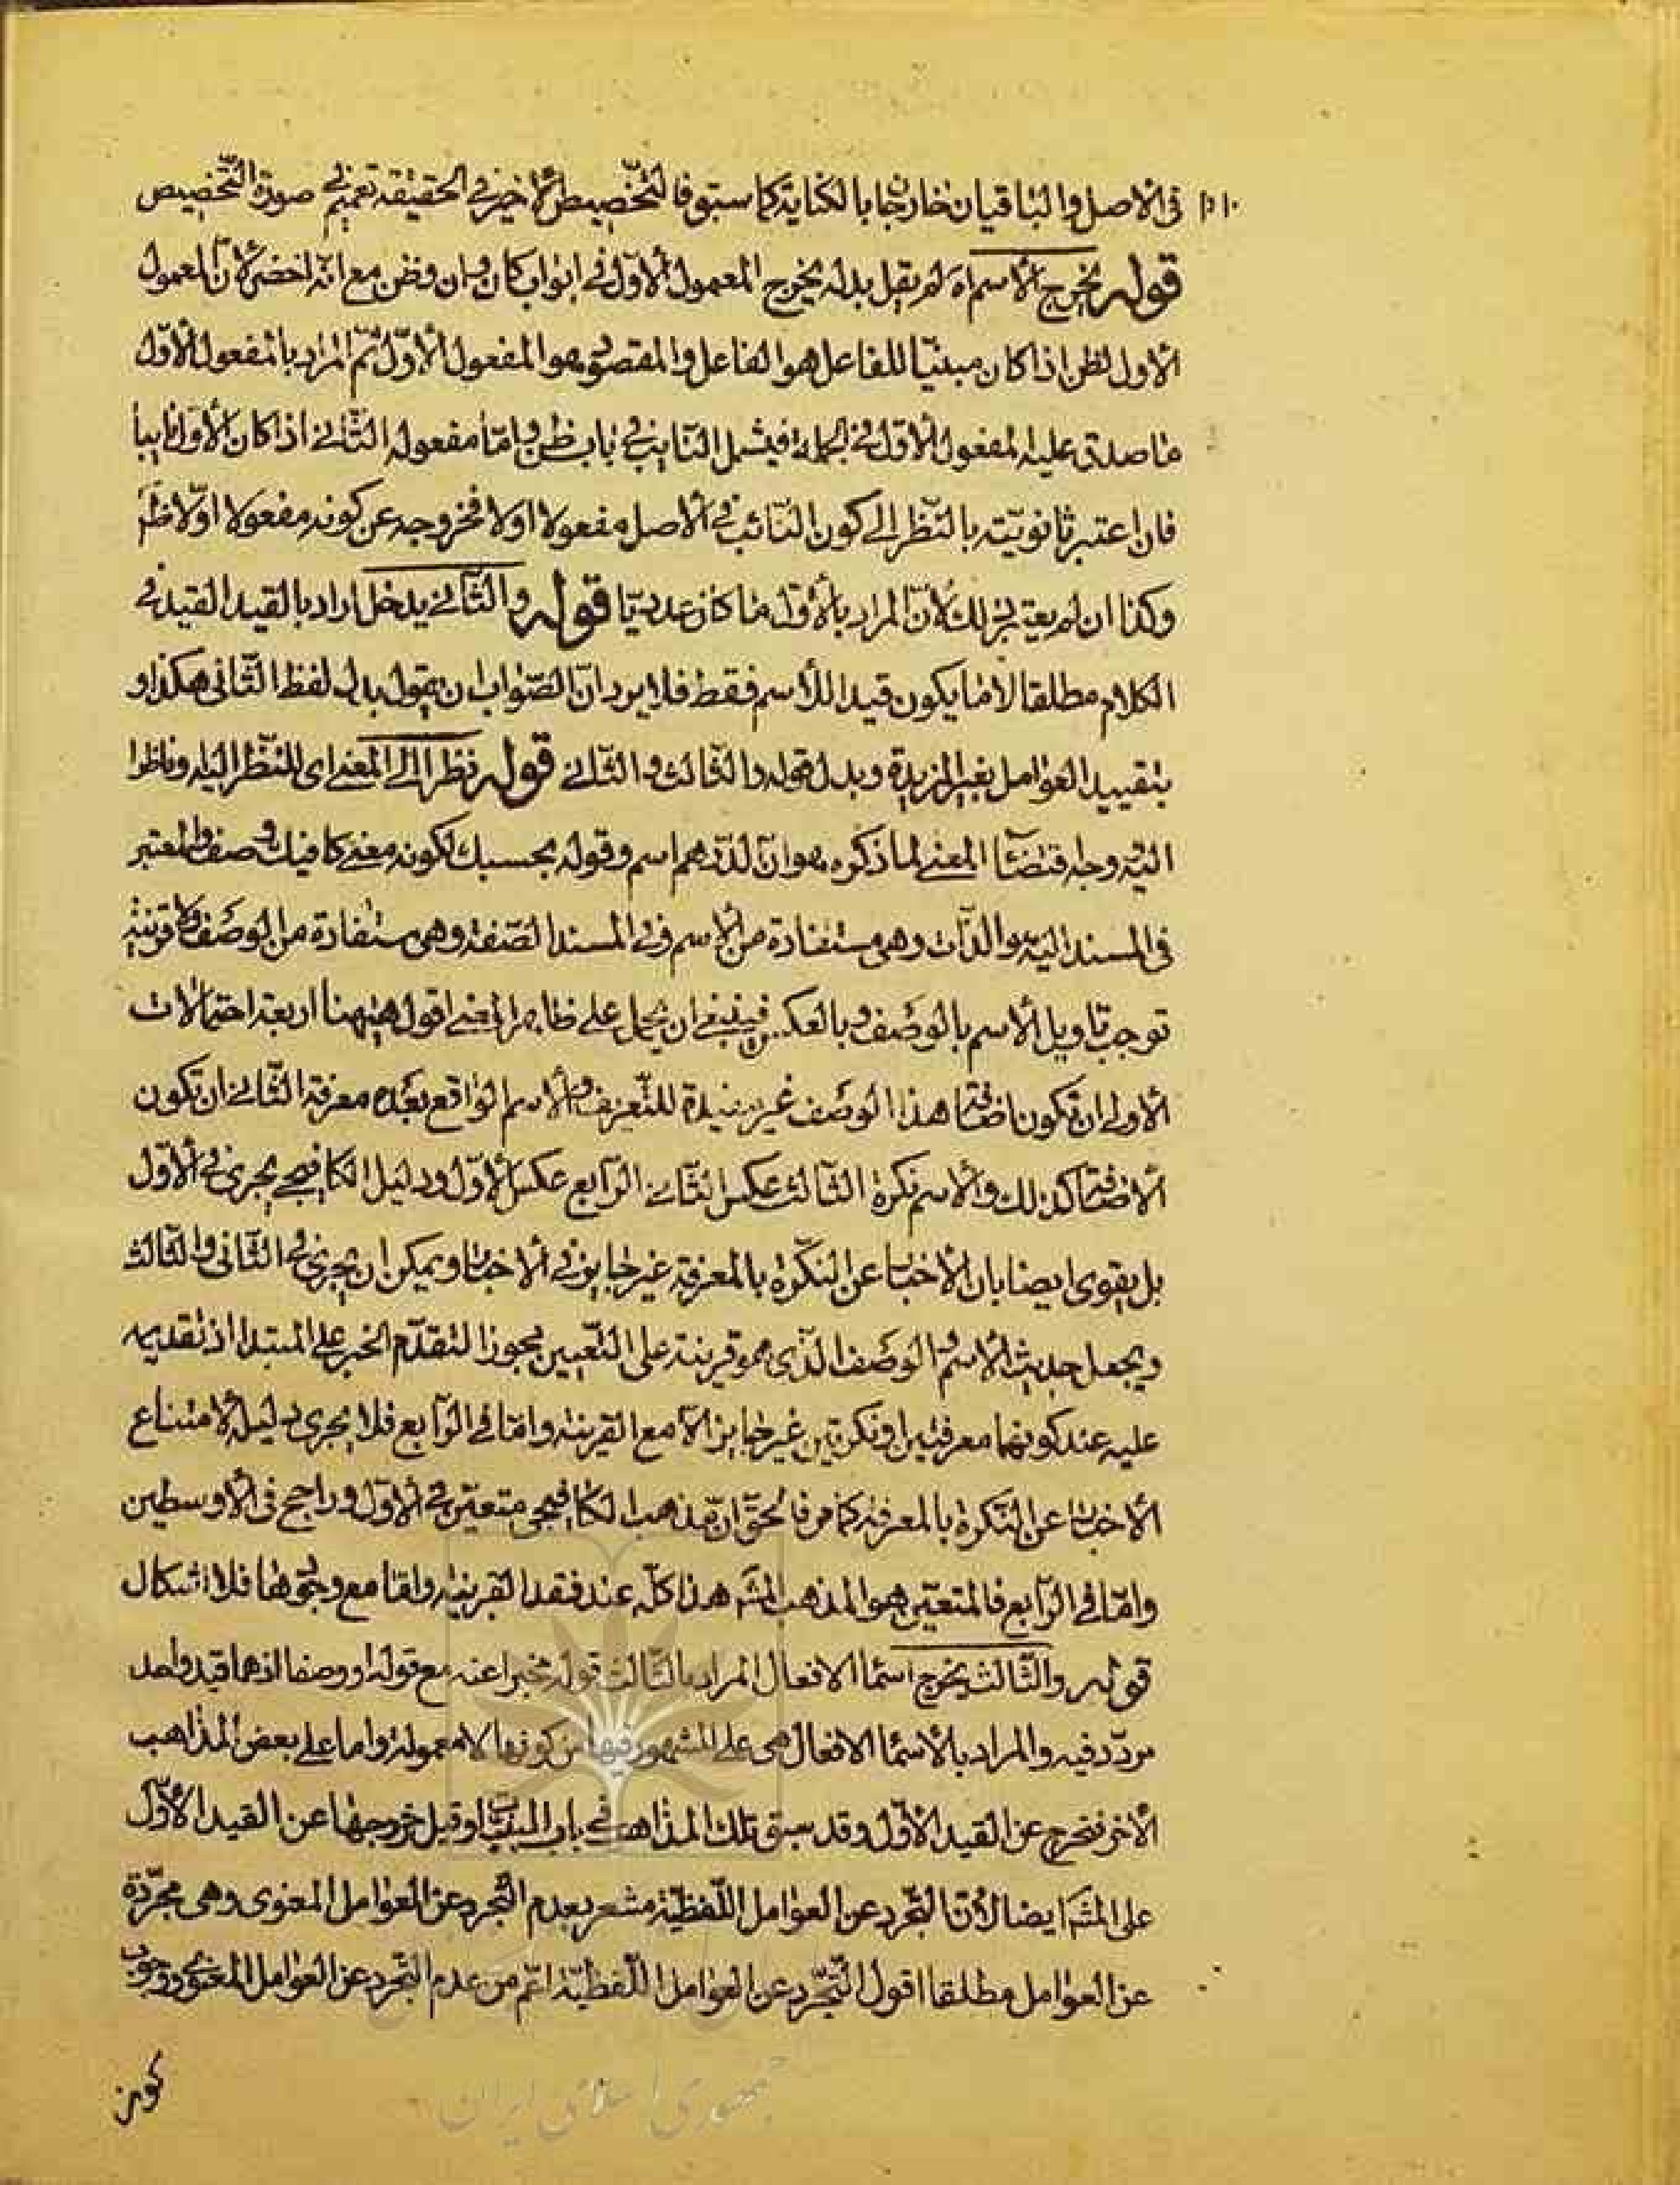 فی الاصل والباقیان خارجان بالکنایة کما سبق فالتخصیص الاخیر فی الحقیقة تعمیم فی صورة التخصیص
قوله یخرج الاسماء لم یقل بدله یخرج المعمول الاول فی ابواب کان وان وظن مع انه اخصر لان المعمول
الاول لظن اذا کان مبنیا للفاعل هو الفاعل والمقصود هو المفعول الاول ثم المراد بالمفعول الاول
ما صدق علیه المفعول الاول فی الجملة فیشمل النایب فی باب ظن واما مفعوله الثانی اذا کان الاول نایبا
فان اعتبر ثانویته بالنظر الی کون النائب فی الاصل مفعولا اولا فخروجه عن کونه مفعولا اولا ظ
وکذا ان لم یعتبر ذلک لان المراد بالاول ما کان عدیا قوله والثانی یدخل اراد بالقید القید فی
الکلام مطلقا لا ما یکون قیدا للاسم فقط فلا یرد ان الصواب ان یقول بدل لفظ الثانی هکذا و
بتقیید العوامل بغیر المزیدة وبدل قوله والثالث والثانی قوله نظرا الی المعنی ای للنظر الیه وناظرا
الیه وجه اقتضاء المعنی لما ذکره هو ان الدرهم اسم وقوله بحسبک لکونه معنی کافیک وصف والمعتبر
فی المسند الیه هو الذات وهی مستفادة من الاسم وفی المسند الصفة وهی مستفادة من الوصف ولا قرینة
توجب تاویل الاسم بالوصف وبالعکس فینبغی ان یحمل علی ظاهر المعنی اقول ههنا اربعة احتمالات
الاول ان تکون اضافة هذا الوصف غیر مفیدة للتعریف والاسم الواقع بعده معرفة الثانی ان تکون
الاضافة کذلک والاسم نکرة الثالث عکس الثانی الرابع عکس الاول ودلیل الکافیجی یجری فی الاول
بل یقوی ایضا بان الاخبار عن النکرة بالمعرفة غیر جایز فی الاخبار ویمکن ان یجری فی الثانی والثالث
ویجعل حدیث الاسم والوصف الذی هو قرینة علی التعیین مجوزا لتقدم الخبر علی المبتدا اذ تقدیمه
علیه عند کونهما معرفتین او نکرتین غیر جایز الا مع القرینة واما فی الرابع فلا یجری دلیله لامتناع
الاخبار عن النکرة بالمعرفة کما مر فالحق ان مذهب الکافیجی متعین فی الاول وراجح فی الاوسطین
واما فی الرابع فالمتعین هو المذهب المش هذا کله عند فقد القرینة واما مع وجودها فلا اشکال
قوله والثالث یخرج اسماء الافعال المراد بالثالث قوله مخبرا عنه مع قوله او وصفا اذ هما قید واحد
مردد فیه والمراد بالاسماء الافعال هی علی المشهور فیها من کونها لا معمولة واما علی بعض المذاهب
الاخر فتخرج عن القید الاول وقد سبق تلک المذاهب فی باب المبنیات وقیل خروجها عن القید الاول
علی المش ایضا لان التجرد عن العوامل اللفظیة مشعر بعدم التجرد عن العوامل المعنوی وهی مجردة
عن العوامل مطلقا اقول التجرد عن العوامل اللفظیة اعم من عدم التجرد عن العوامل المعنوی ووجوب
جمهوری اسلامی ایران